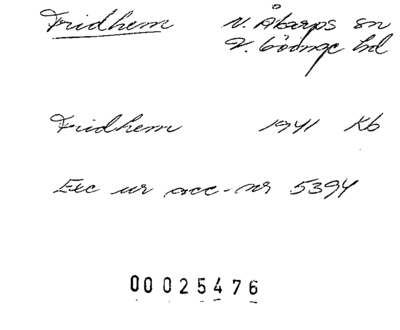 Fridhem V. Åkarps sn
V. Göinge hd
Fridhem 1941 Kb
Exc ur acc-nr 5394
00025476